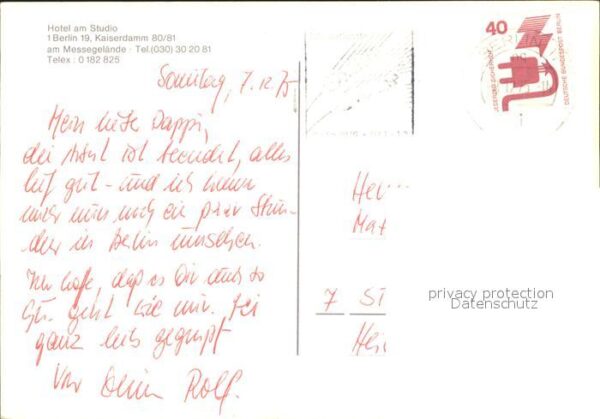 Hotel am Studio
1 Berlin 19, Kaiserdamm 80/81
am Messegelände · Tel.(030) 30 20 81
Telex : 0 182 825
40
DEUTSCHE BUNDESPOST BERLIN
Sonntag, 7.12.75
Mein lieber Pappi,
die Arbeit ist beendet, alles
lief gut - und ich kann
mich nun noch ein paar Stun-
den in Berlin umsehen.
Ich hoffe, daß es Dir auch so
gut geht wie mir. Sei
ganz lieb gegrüßt
Von Deinem Rolf.
Her
Mat
7 St
Hei
privacy protection
Datenschutz